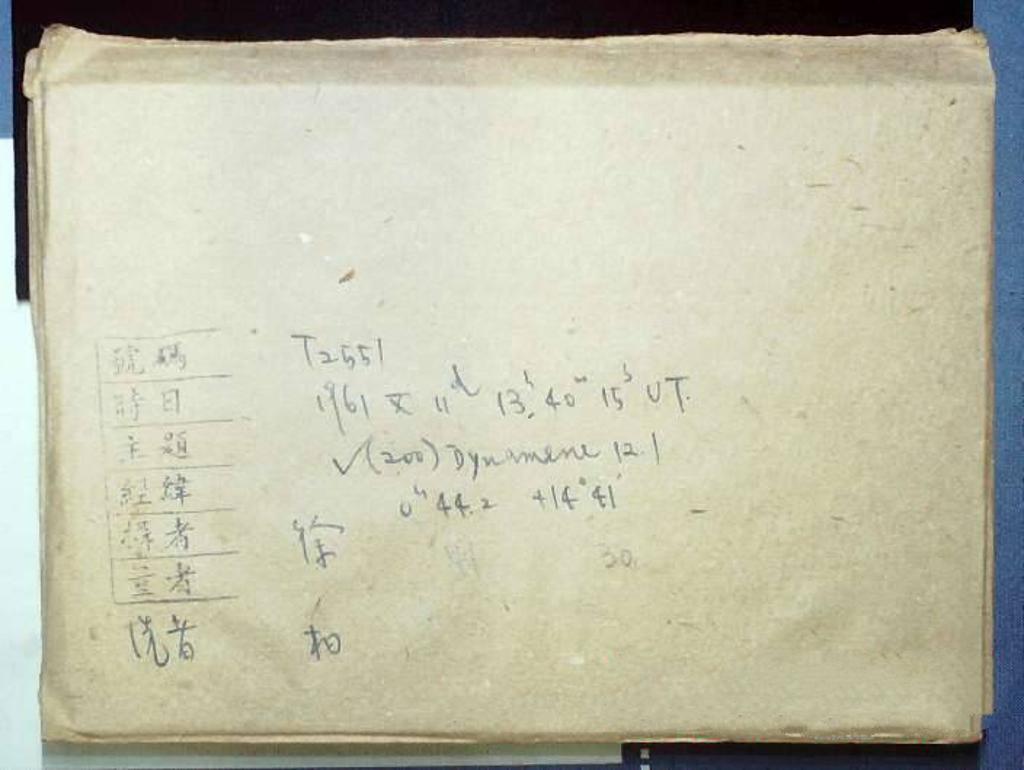 號碼 T2551
時日 1961 X 11d 13h 40m 15s UT.
主題 √(200) Dynamene 12.1
經緯 0h 44.2 +14°41'
擇者 徐 30.
者
洗者 柏